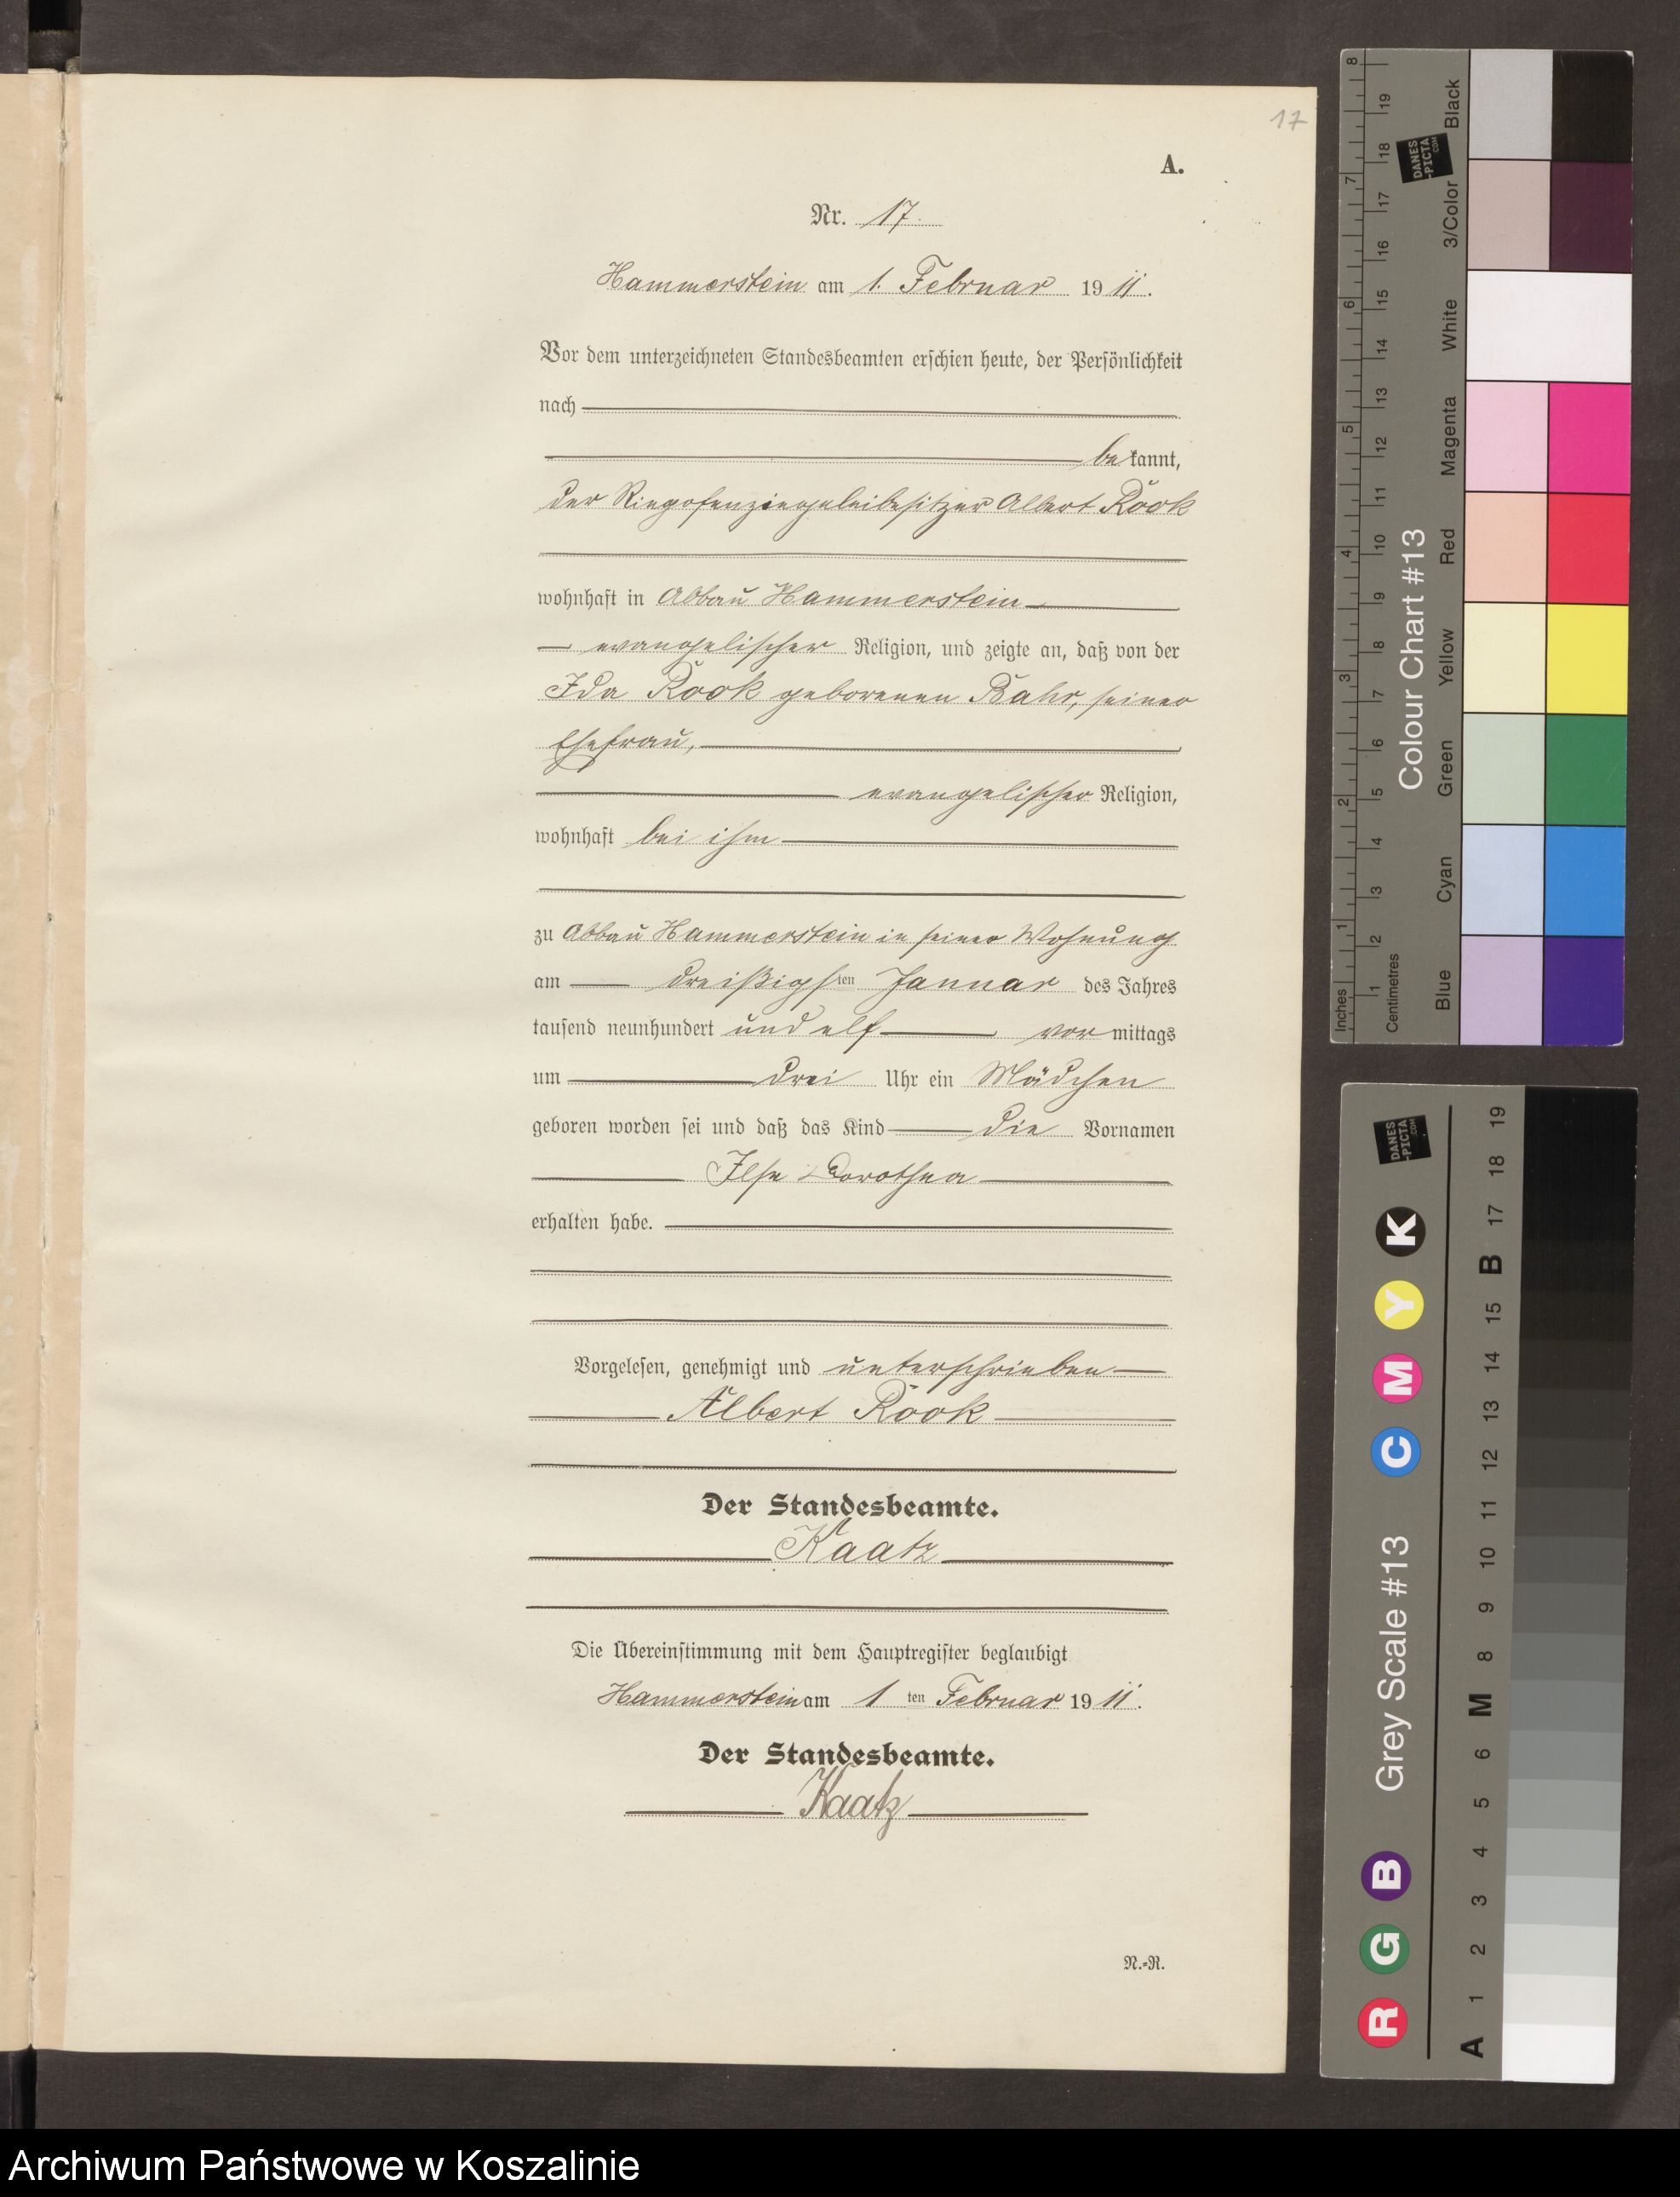 17
A.
Nr. 17.
Hammerstein am 1. Februar 1911.
Vor dem unterzeichneten Standesbeamten erschien heute, der Persönlichkeit
nach
bekannt,
der Ringofenziegeleibesitzer Albert Rook
wohnhaft in Abbau Hammerstein
evangelischer Religion, und zeigte an, daß von der
Ida Rook geborenen Bahr, seiner
Ehefrau,
evangelischer Religion,
wohnhaft bei ihm
zu Abbau Hammerstein in seiner Wohnung
am dreißigsten Januar des Jahres
tausend neunhundert und elf vormittags
um drei Uhr ein Mädchen
geboren worden sei und daß das Kind die Vornamen
Ilse Dorothea
erhalten habe.
Vorgelesen, genehmigt und unterschrieben
Albert Rook
Der Standesbeamte.
Kaatz
Die Übereinstimmung mit dem Hauptregister beglaubigt
Hammerstein am 1ten Februar 1911.
Der Standesbeamte.
Kaatz
N.=R.
Inches 1 2 3 4 5 6 7 8
Centimetres 1 2 3 4 5 6 7 8 9 10 11 12 13 14 15 16 17 18 19
Colour Chart #13
Blue Cyan Green Yellow Red Magenta White 3/Color Black
DANES
-PICTA
.COM
Grey Scale #13
R G B C M Y K
A 1 2 3 4 5 6 M 8 9 10 11 12 13 14 15 B 17 18 19
DANES
-PICTA
.COM
Archiwum Państwowe w Koszalinie